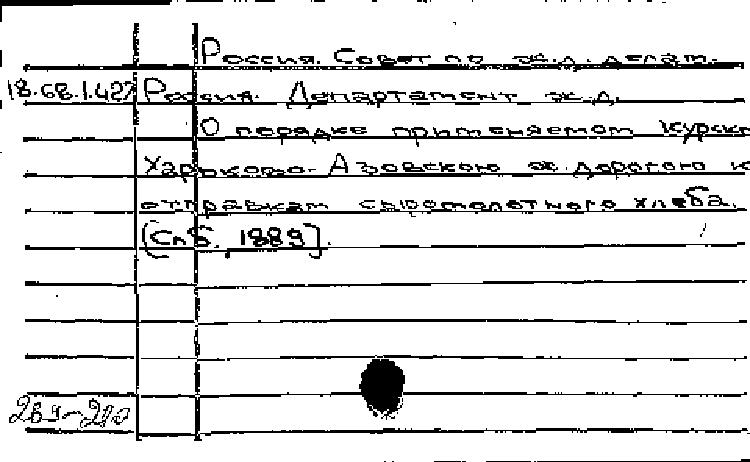 Россия. Совет по ж.д. делам.
18.68.1.427 Россия. Департамент ж.д.
О порядке применяемом Курско
Харьково-Азовскою ж. дорогою к
отправкам сыромолотного хлеба.
[Спб, 1889].